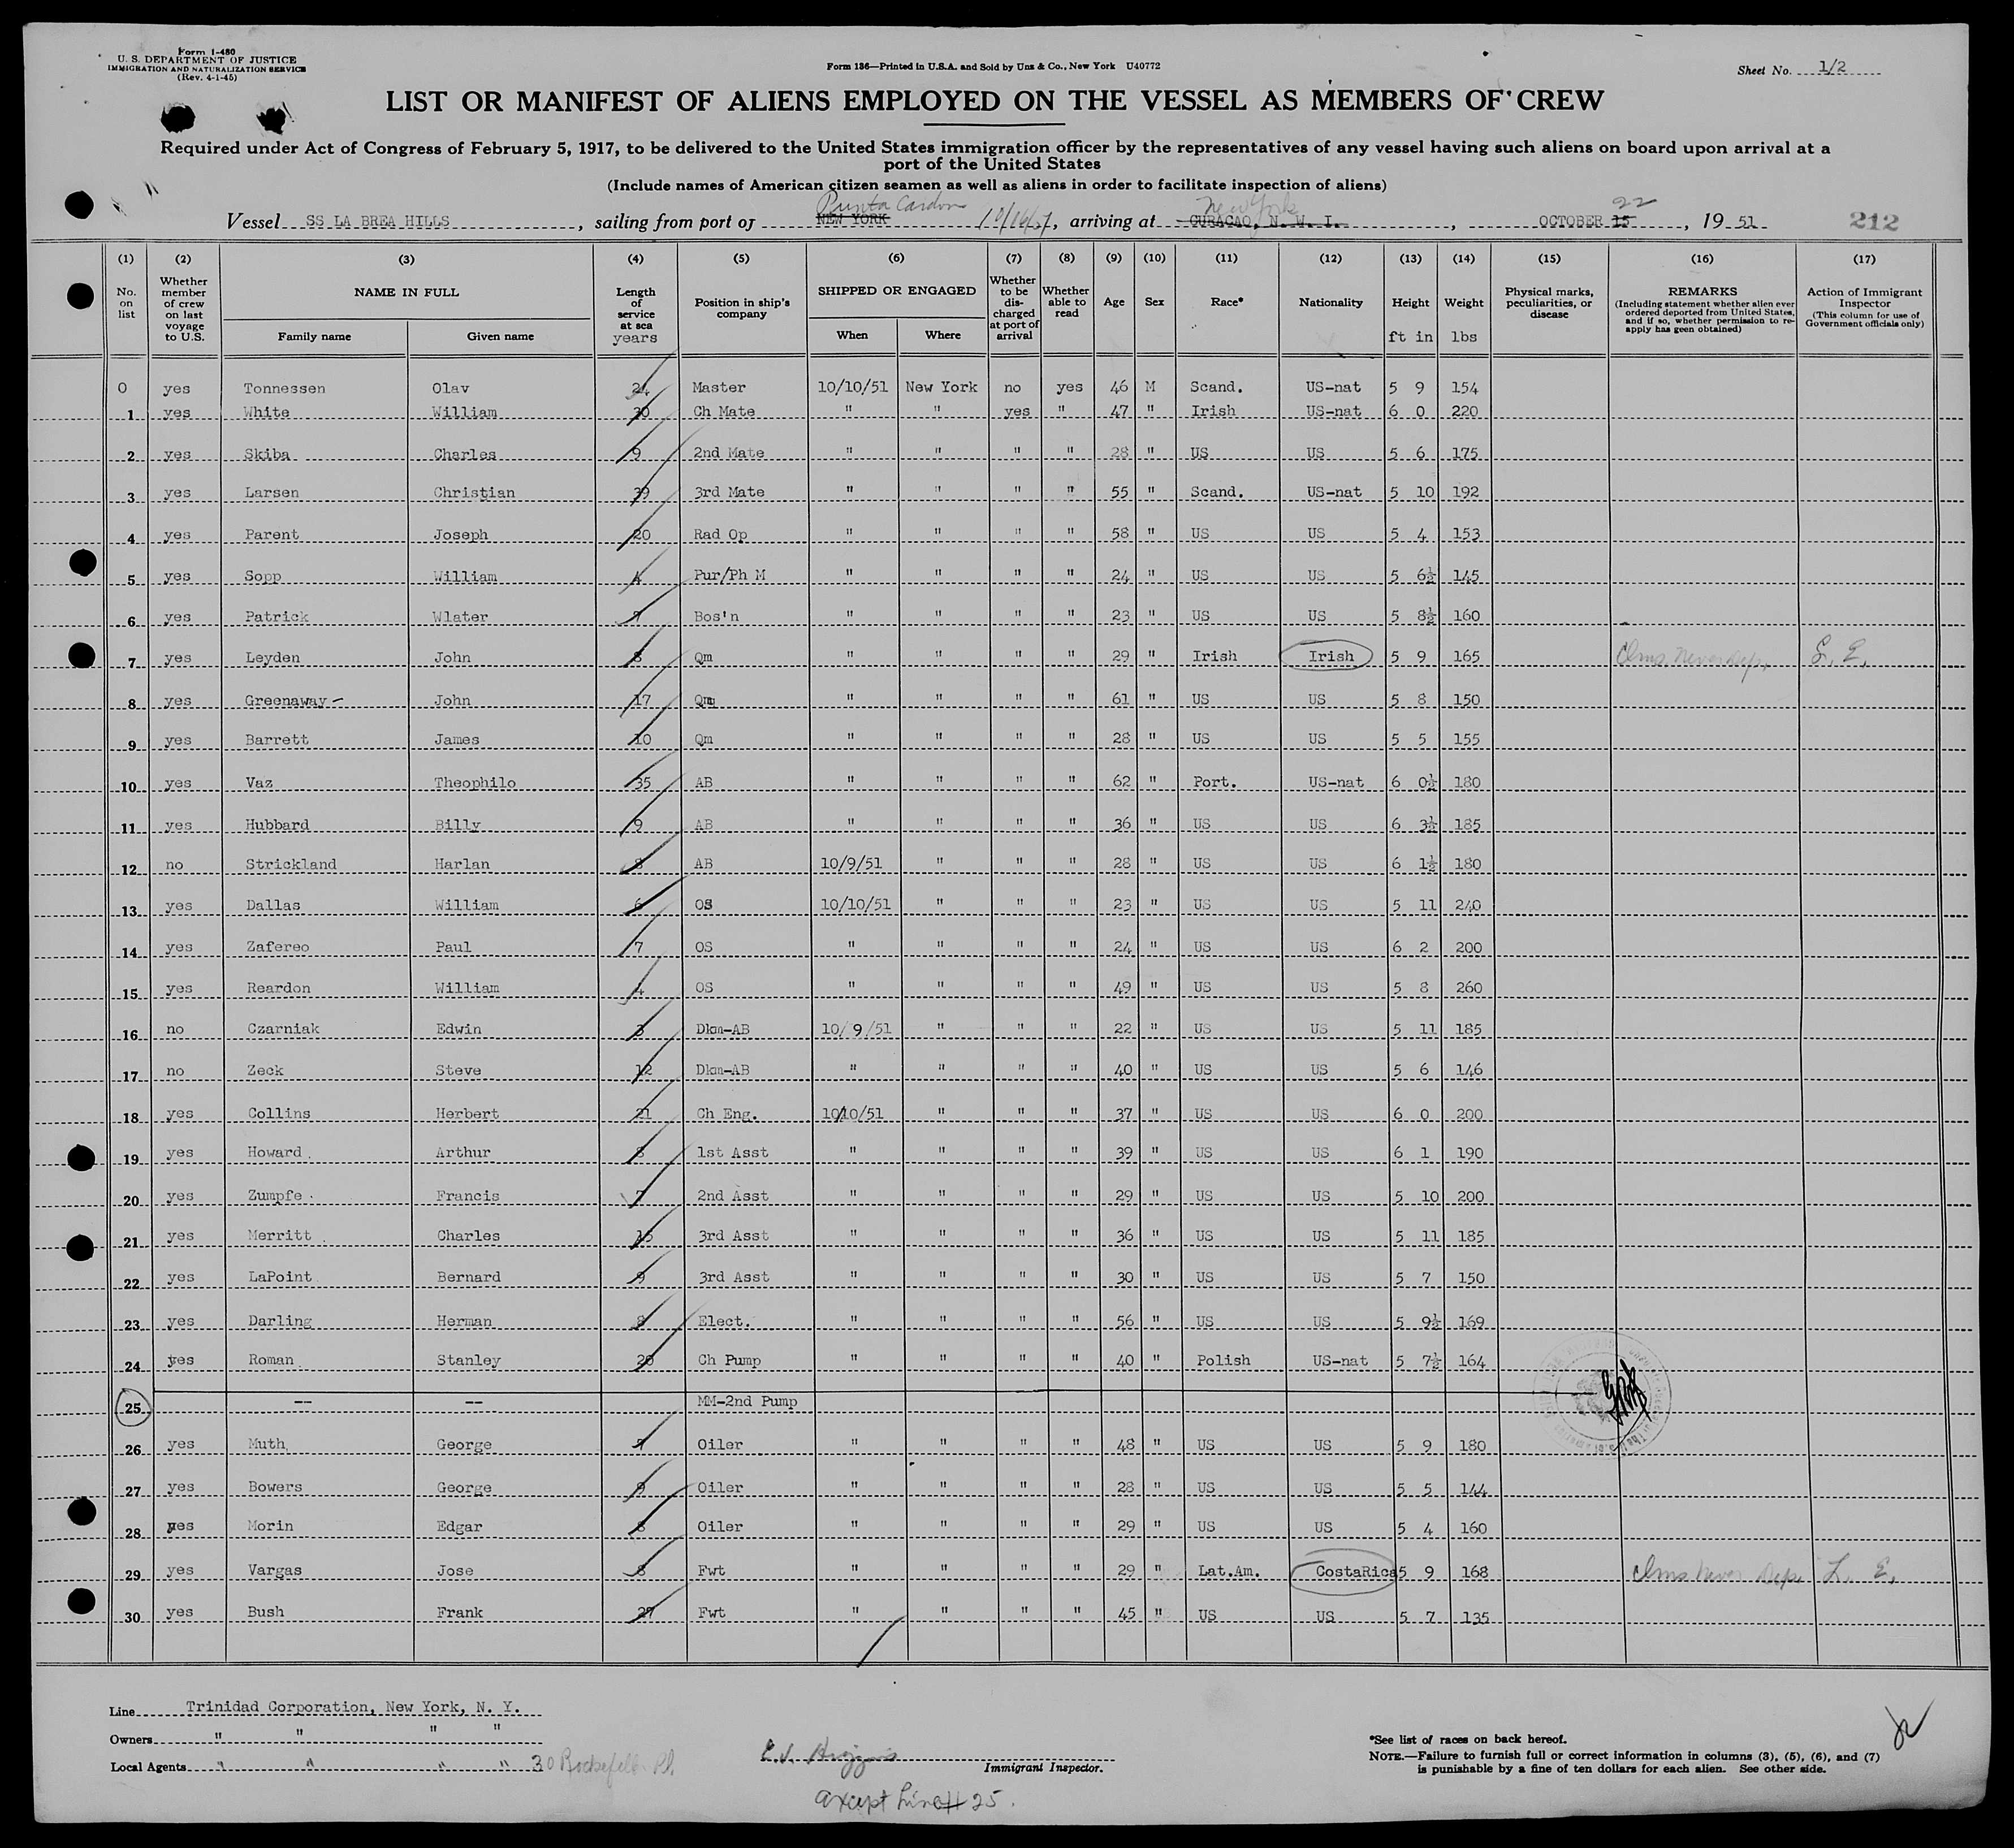 Form I-480
U. S. DEPARTMENT OF JUSTICE
IMMIGRATION AND NATURALIZATION SERVICE
(Rev. 4-1-45)
Form 136—Printed in U.S.A. and Sold by Unz & Co., New York U40772
Sheet No. 1/2
LIST OR MANIFEST OF ALIENS EMPLOYED ON THE VESSEL AS MEMBERS OF CREW
Required under Act of Congress of February 5, 1917, to be delivered to the United States immigration officer by the representatives of any vessel having such aliens on board upon arrival at a
port of the United States
(Include names of American citizen seamen as well as aliens in order to facilitate inspection of aliens)
Punta Cardon New York 22
Vessel SS LA BREA HILLS, sailing from port of NEW YORK 10/16/51, arriving at CURACAO, N. W. I., OCTOBER 15, 19 51 212
(1) (2) (3) (4) (5) (6) (7) (8) (9) (10) (11) (12) (13) (14) (15) (16) (17)
No. on list
Whether member of crew on last voyage to U.S.
NAME IN FULL
Family name
Given name
Length of service at sea years
Position in ship's company
SHIPPED OR ENGAGED
When
Where
Whether to be discharged at port of arrival
Whether able to read
Age
Sex
Race*
Nationality
Height ft in
Weight lbs
Physical marks, peculiarities, or disease
REMARKS
(Including statement whether alien ever ordered deported from United States, and if so, whether permission to re-apply has geen obtained)
Action of Immigrant Inspector
(This column for use of Government officials only)
0 yes Tonnessen Olav 24 Master 10/10/51 New York no yes 46 M Scand. US-nat 5 9 154
1 yes White William 30 Ch Mate " " yes " 47 " Irish US-nat 6 0 220
2 yes Skiba Charles 9 2nd Mate " " " " 28 " US US 5 6 175
3 yes Larsen Christian 39 3rd Mate " " " " 55 " Scand. US-nat 5 10 192
4 yes Parent Joseph 20 Rad Op " " " " 58 " US US 5 4 153
5 yes Sopp William 4 Pur/Ph M " " " " 24 " US US 5 6½ 145
6 yes Patrick Wlater 7 Bos'n " " " " 23 " US US 5 8½ 160
7 yes Leyden John 8 Qm " " " " 29 " Irish Irish 5 9 165 Clms Never Dep. L. E.
8 yes Greenaway John 17 Qm " " " " 61 " US US 5 8 150
9 yes Barrett James 10 Qm " " " " 28 " US US 5 5 155
10 yes Vaz Theophilo 35 AB " " " " 62 " Port. US-nat 6 0½ 180
11 yes Hubbard Billy 9 AB " " " " 36 " US US 6 3½ 185
12 no Strickland Harlan 8 AB 10/9/51 " " " 28 " US US 6 1½ 180
13 yes Dallas William 6 OS 10/10/51 " " " 23 " US US 5 11 240
14 yes Zafereo Paul 7 OS " " " " 24 " US US 6 2 200
15 yes Reardon William 4 OS " " " " 49 " US US 5 8 260
16 no Czarniak Edwin 3 Dkm-AB 10/9/51 " " " 22 " US US 5 11 185
17 no Zeck Steve 12 Dkm-AB " " " " 40 " US US 5 6 146
18 yes Collins Herbert 21 Ch Eng. 10/10/51 " " " 37 " US US 6 0 200
19 yes Howard Arthur 8 1st Asst " " " " 39 " US US 6 1 190
20 yes Zumpfe Francis 7 2nd Asst " " " " 29 " US US 5 10 200
21 yes Merritt Charles 15 3rd Asst " " " " 36 " US US 5 11 185
22 yes LaPoint Bernard 9 3rd Asst " " " " 30 " US US 5 7 150
23 yes Darling Herman 8 Elect. " " " " 56 " US US 5 9½ 169
24 yes Roman Stanley 20 Ch Pump " " " " 40 " Polish US-nat 5 7½ 164
25 -- -- MM-2nd Pump
26 yes Muth George 7 Oiler " " " " 48 " US US 5 9 180
27 yes Bowers George 9 Oiler " " " " 28 " US US 5 5 144
28 yes Morin Edgar 8 Oiler " " " " 29 " US US 5 4 160
29 yes Vargas Jose 8 Fwt " " " " 29 " Lat.Am. CostaRica 5 9 168 Clms Never Dep. L. E.
30 yes Bush Frank 27 Fwt " " " " 45 " US US 5 7 135
Line Trinidad Corporation, New York, N. Y.
Owners " " " "
Local Agents " " " " 30 Rockefell. Pl.
E. J. Higgins
Immigrant Inspector.
except Line # 25.
*See list of races on back hereof.
NOTE.—Failure to furnish full or correct information in columns (3), (5), (6), and (7)
is punishable by a fine of ten dollars for each alien. See other side.